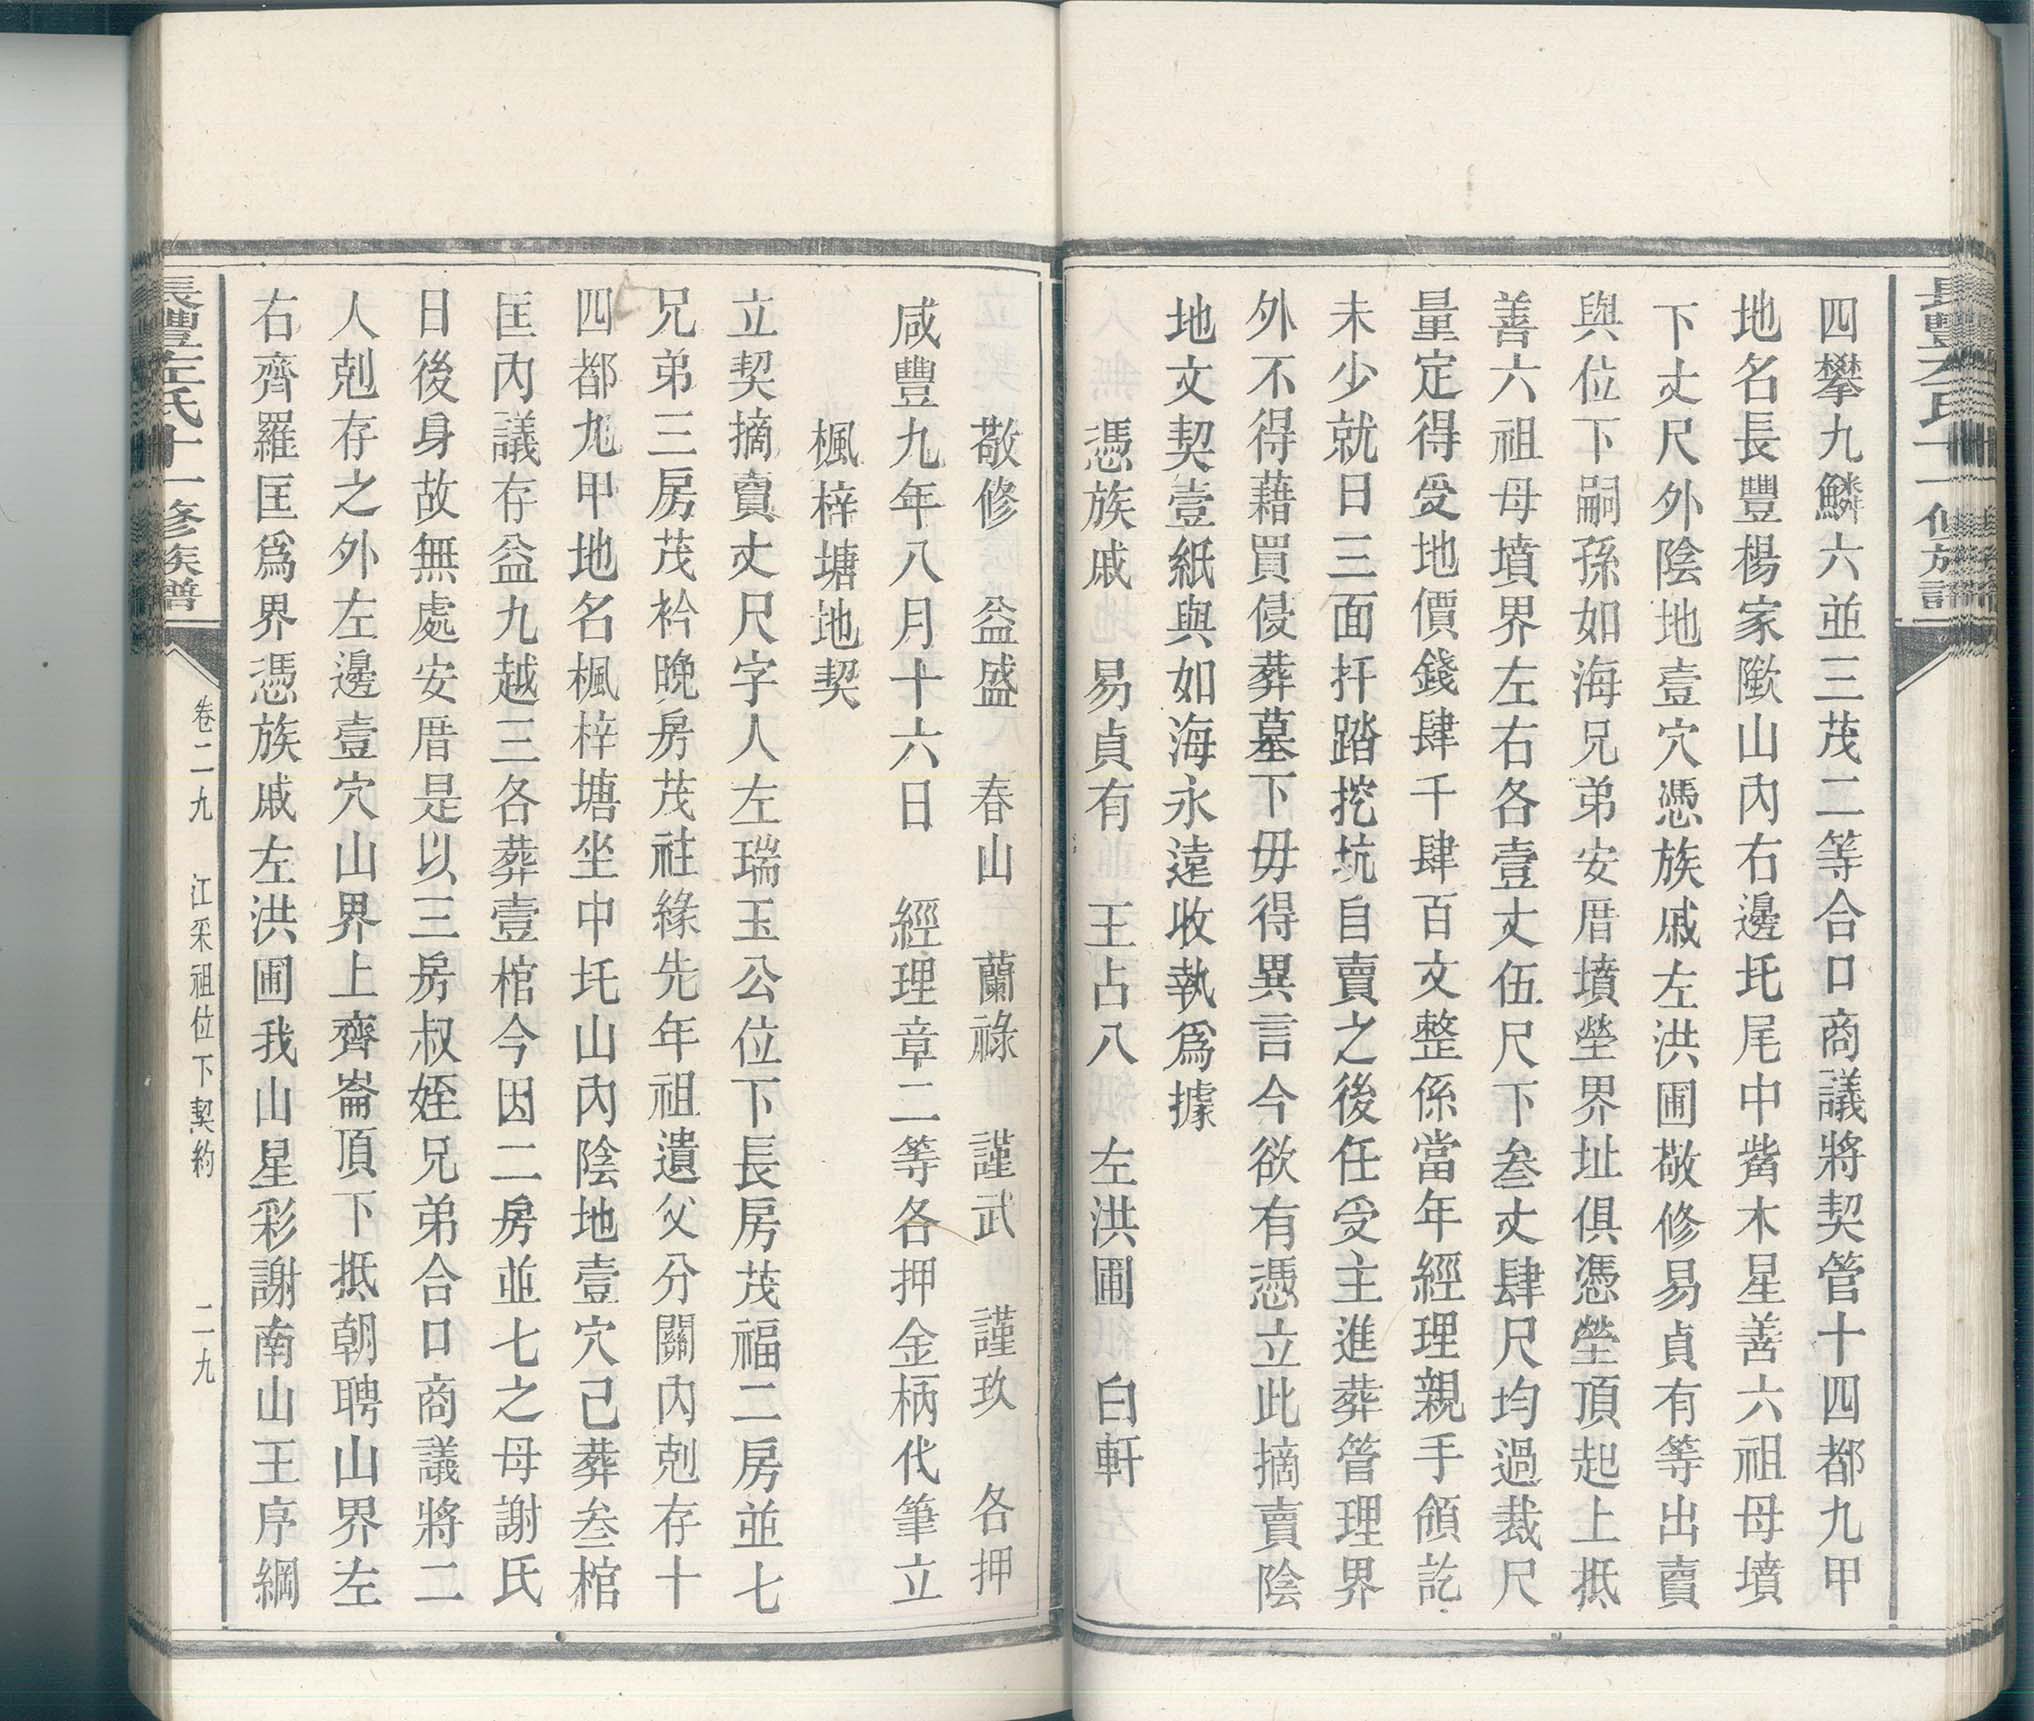 四攀九鱗六並三茂二等合口商議將契管十四都九甲
地名長豐楊家歞山內右邊圫尾中觜木星善六祖母墳
下丈尺外陰地壹穴憑族戚左洪圃敬修易貞有等出賣
與位下嗣孫如海兄弟安厝墳塋界址俱憑塋頂起上抵
善六祖母墳界左右各壹丈伍尺下叁丈肆尺均過裁尺
量定得受地價錢肆千肆百文整係當年經理親手領訖
未少就日三面扦踏挖坑自賣之後任受主進葬管理界
外不得藉買侵葬墓下毋得異言今欲有憑立此摘賣陰
地文契壹紙與如海永遠收執爲據
憑族戚 易貞有 王占八 左洪圃 白軒
敬修 益盛 春山 蘭祿 謹武 謹玖 各押
咸豐九年八月十六日 經理章二等各押金柄代筆立
楓梓塘地契
立契摘賣丈尺字人左瑞玉公位下長房茂福二房並七
兄弟三房茂衿晚房茂社緣先年祖遺父分關內剋存十
四都九甲地名楓梓塘坐中圫山內陰地壹穴已葬叁棺
匡內議存益九越三各葬壹棺今因二房並七之母謝氏
日後身故無處安厝是以三房叔姪兄弟合口商議將二
人剋存之外左邊壹穴山界上齊崙頂下抵朝聘山界左
右齊羅匡爲界憑族戚左洪圃我山星彩謝南山王序綱
長豐左氏十一修族譜
卷二九 江采祖位下契約 二九